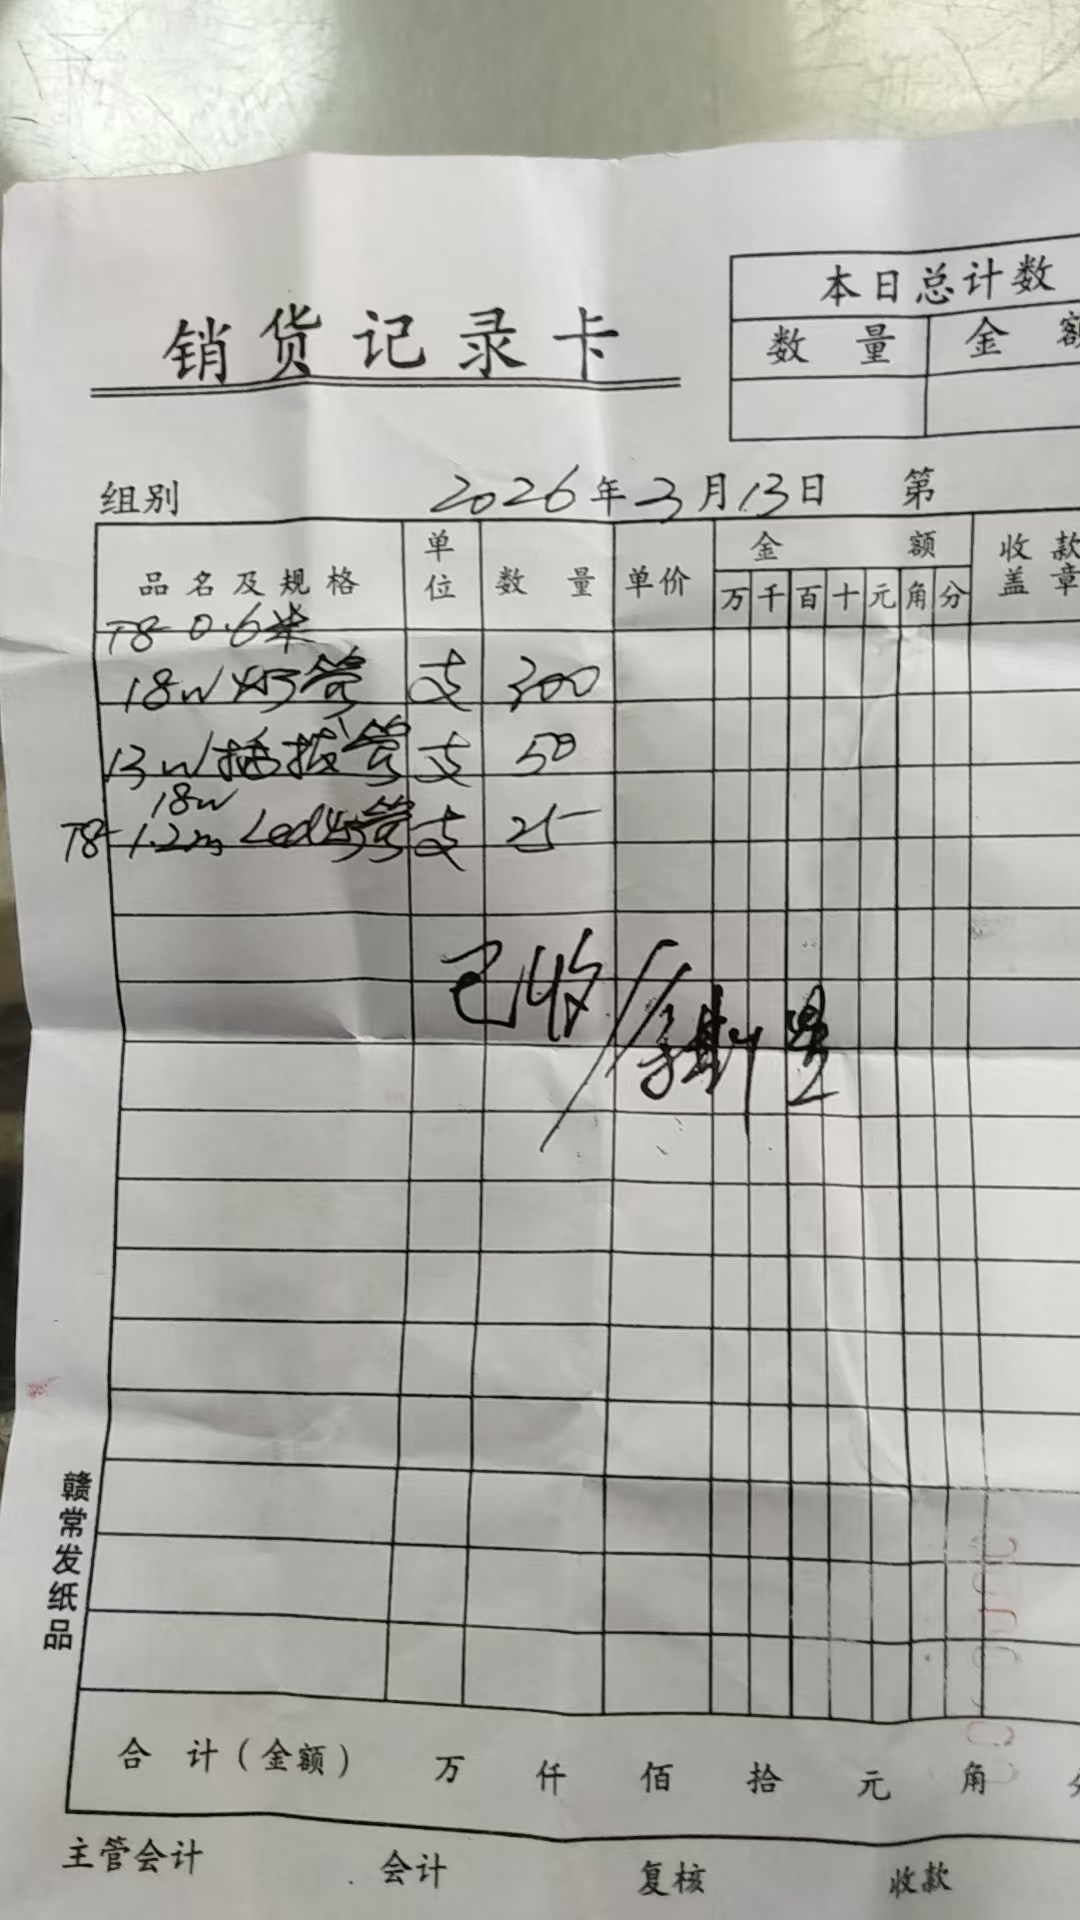 本日总计数
销货记录卡
数量 金额
组别 2026年3月13日 第
品名及规格 单位 数量 单价 金额 收款盖章
万 千 百 十 元 角 分
T8 0.6米
18w灯管 支 300
13w插拔管 支 50
18w
T8-1.2m Led灯管 支 25
已收
赣常发纸品
合计(金额) 万 仟 佰 拾 元 角
主管会计 会计 复核 收款